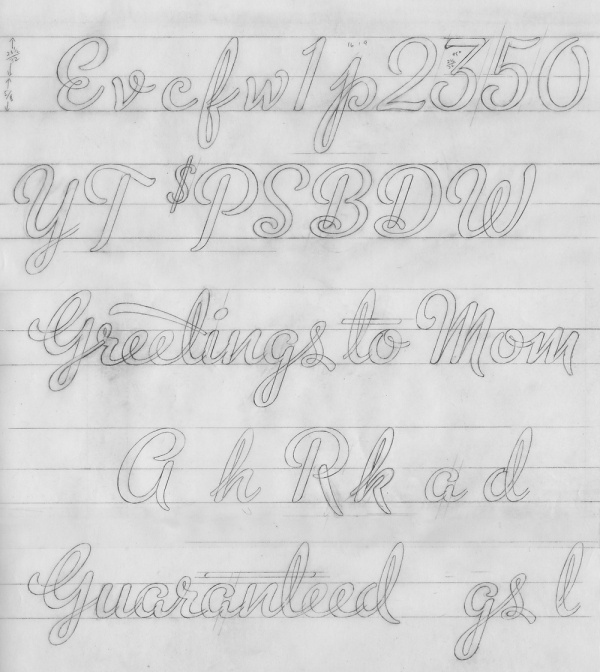 Evcfw1p2350
YT $PSBDW
Greetings to Mom
A h Rk a d
Guaranteed gs l